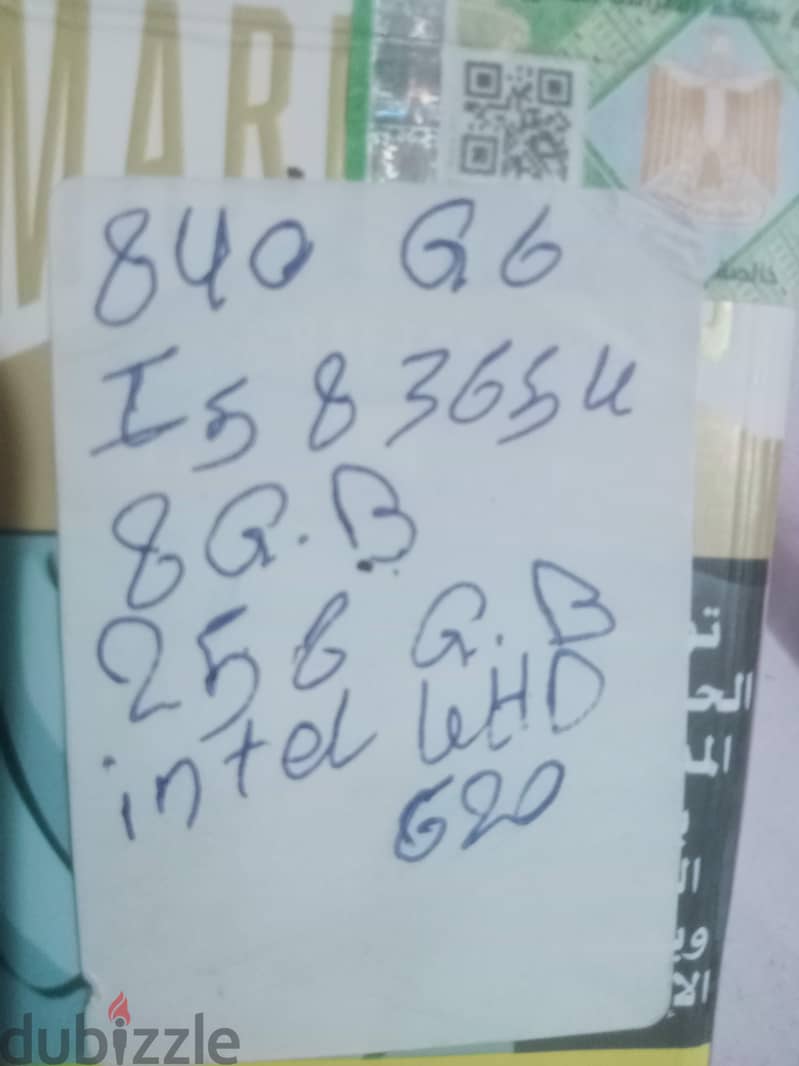 MAR
840 G6
I5 8365u
8 G.B
256 G.B
intel UHD
620
dubizzle